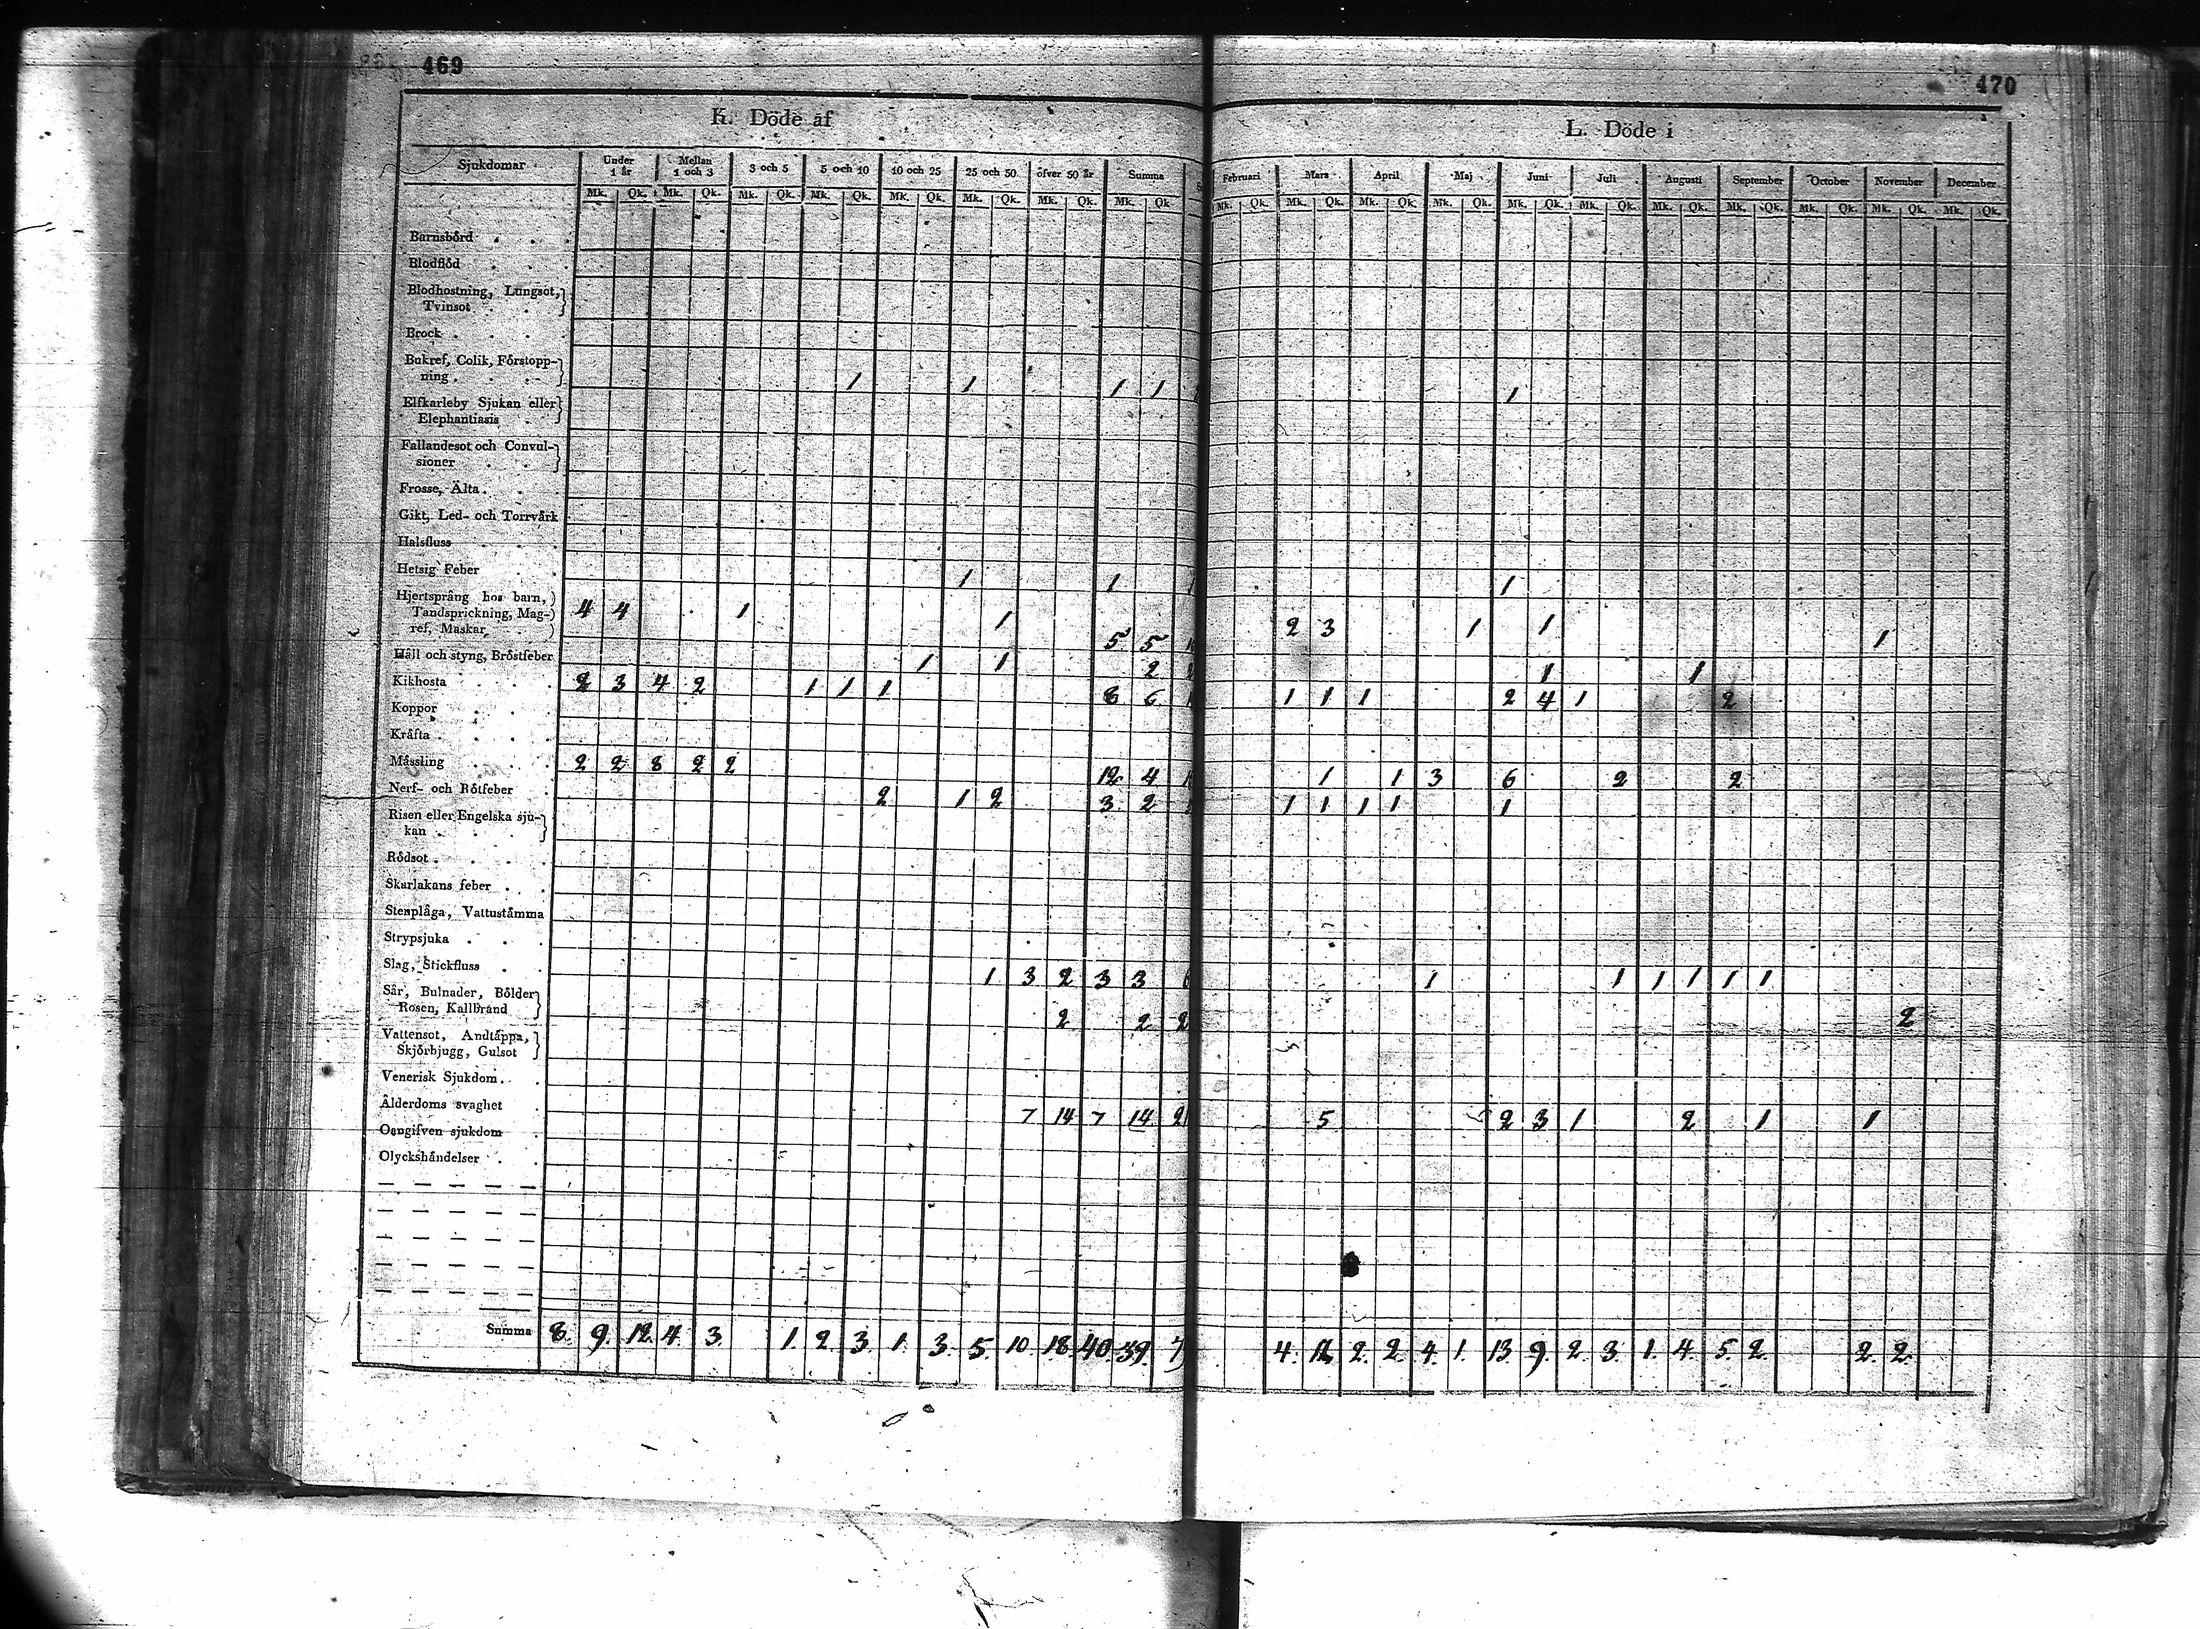 469
470
K. Döde af
L. Döde i
Sjukdomar Under 1 år Mellan 1 och 3 3 och 5 5 och 10 10 och 25 25 och 50 öfver 50 år Summa
Februari Mars April Maj Juni Juli Augusti September October November December
Mk. Qk. Mk. Qk. Mk. Qk. Mk. Qk. Mk. Qk. Mk. Qk. Mk. Qk. Mk. Qk.
Mk. Qk. Mk. Qk. Mk. Qk. Mk. Qk. Mk. Qk. Mk. Qk. Mk. Qk. Mk. Qk. Mk. Qk. Mk. Qk. Mk. Qk.
Barnsbörd
Blodflöd
Blodhostning, Lungsot,
Tvinsot
Brock
Bukref, Colik, Förstopp-
ning 1 1 1 1 1
Elfkarleby Sjukan eller
Elephantiasis
Fallandesot och Convul-
sioner
Frosse, Älta
Gikt, Led- och Torrvärk
Halsfluss
Hetsig Feber 1 1 1
Hjertsprång hos barn,
Tandsprickning, Mag- 4 4 1 1
ref, Maskar 5 5 2 3 1 1 1
Håll och styng, Bröstfeber 1 1 2 1 1
Kikhosta 2 3 4 2 1 1 1 8 6 1 1 1 2 4 1 2
Koppor
Kräfta
Mässling 2 2 8 2 2 12 4 1 1 3 6 2 2
Nerf- och Rötfeber 2 1 2 3 2 1 1 1 1 1
Risen eller Engelska sju-
kan
Rödsot
Skarlakans feber
Stenplåga, Vattustämma
Strypsjuka
Slag, Stickfluss 1 3 2 3 3 6 1 1 1 1 1 1
Sår, Bulnader, Bölder
Rosen, Kallbrand 2 2 2 2
Vattensot, Andtäppa,
Skjörbjugg, Gulsot
Venerisk Sjukdom
Ålderdoms svaghet 7 14 7 14 21 5 2 3 1 2 1 1
Oengifven sjukdom
Olyckshändelser
Summa 8. 9. 12. 4. 3. 1. 2. 3. 1. 3. 5. 10. 18. 40. 39. 4. 2. 2. 4. 1. 13. 9. 2. 3. 1. 4. 5. 2. 2. 2.